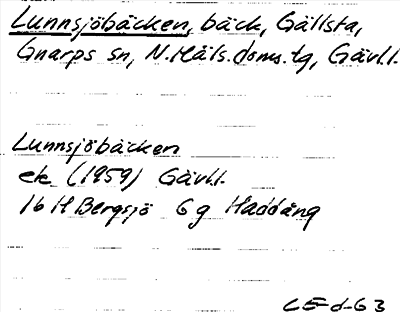 Lunnsjöbäcken, bäck, Gällsta,
Gnarps sn, N.Häls.doms.tg, Gävl.l.
Lunnsjöbäcken
ek (1959) Gävl.l.
16 H Bergsjö 6 g Haddäng
CE-d-63